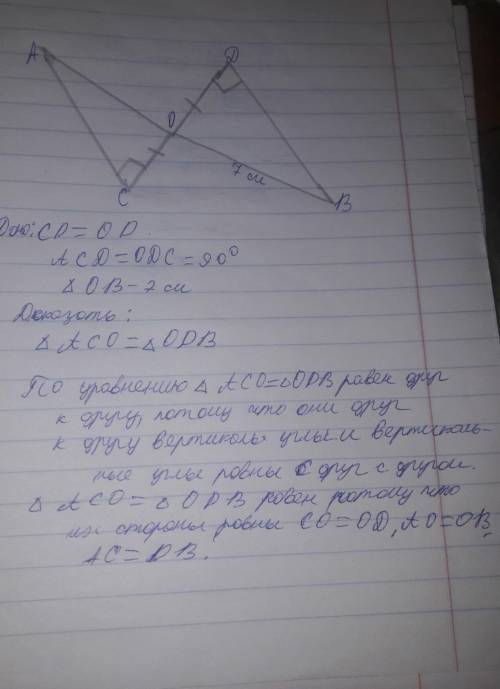 A
D
O
7 см
C
B
Дано: CD = OD.
ACD = ODC = 90°
△ OB - 7 см
Доказать:
△ ACO = △ ODB
По уравнению △ ACO = △ ODB равен друг
к другу, потому что они друг
к другу вертикаль углы и вертикаль-
ные углы ровны с друг с другом.
△ ACO = △ ODB равен потому что
их стороны ровны CO = OD, AO = OB,
AC = DB.